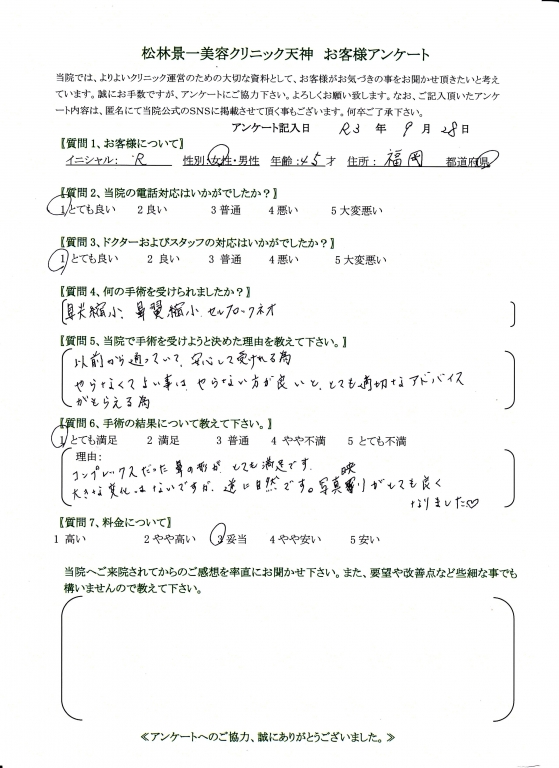 松林景一美容クリニック天神 お客様アンケート
当院では、よりよいクリニック運営のための大切な資料として、お客様がお気づきの事をお聞かせ頂きたいと考え
ています。誠にお手数ですが、アンケートにご協力下さい。よろしくお願い致します。なお、ご記入頂いたアンケ
ート内容は、匿名にて当院公式のSNSに掲載させて頂く事もございます。何卒ご了承下さい。
アンケート記入日 R3 年 9 月 28 日
〖質問 1、お客様について〗
イニシャル: R 性別:女性・男性 年齢:45才 住所: 福岡 都道府県
〖質問 2、当院の電話対応はいかがでしたか?〗
1 とても良い 2 良い 3 普通 4 悪い 5 大変悪い
〖質問 3、ドクターおよびスタッフの対応はいかがでしたか?〗
1 とても良い 2 良い 3 普通 4 悪い 5 大変悪い
〖質問 4、何の手術を受けられましたか?〗
鼻尖縮小、鼻翼縮小、セルブロックネオ
〖質問 5、当院で手術を受けようと決めた理由を教えて下さい。〗
以前から通っていて、安心して受けれる為
やらなくてよい事は、やらない方が良いと、とても適切なアドバイス
がもらえる為
〖質問 6、手術の結果について教えて下さい。〗
1 とても満足 2 満足 3 普通 4 やや不満 5 とても不満
理由:
コンプレックスだった鼻の形が、とても満足です。
大きな変化はないですが、逆に自然です。写真映りがとても良く
なりました♡
〖質問 7、料金について〗
1 高い 2 やや高い 3 妥当 4 やや安い 5 安い
当院へご来院されてからのご感想を率直にお聞かせ下さい。また、要望や改善点など些細な事でも
構いませんので教えて下さい。
≪アンケートへのご協力、誠にありがとうございました。≫